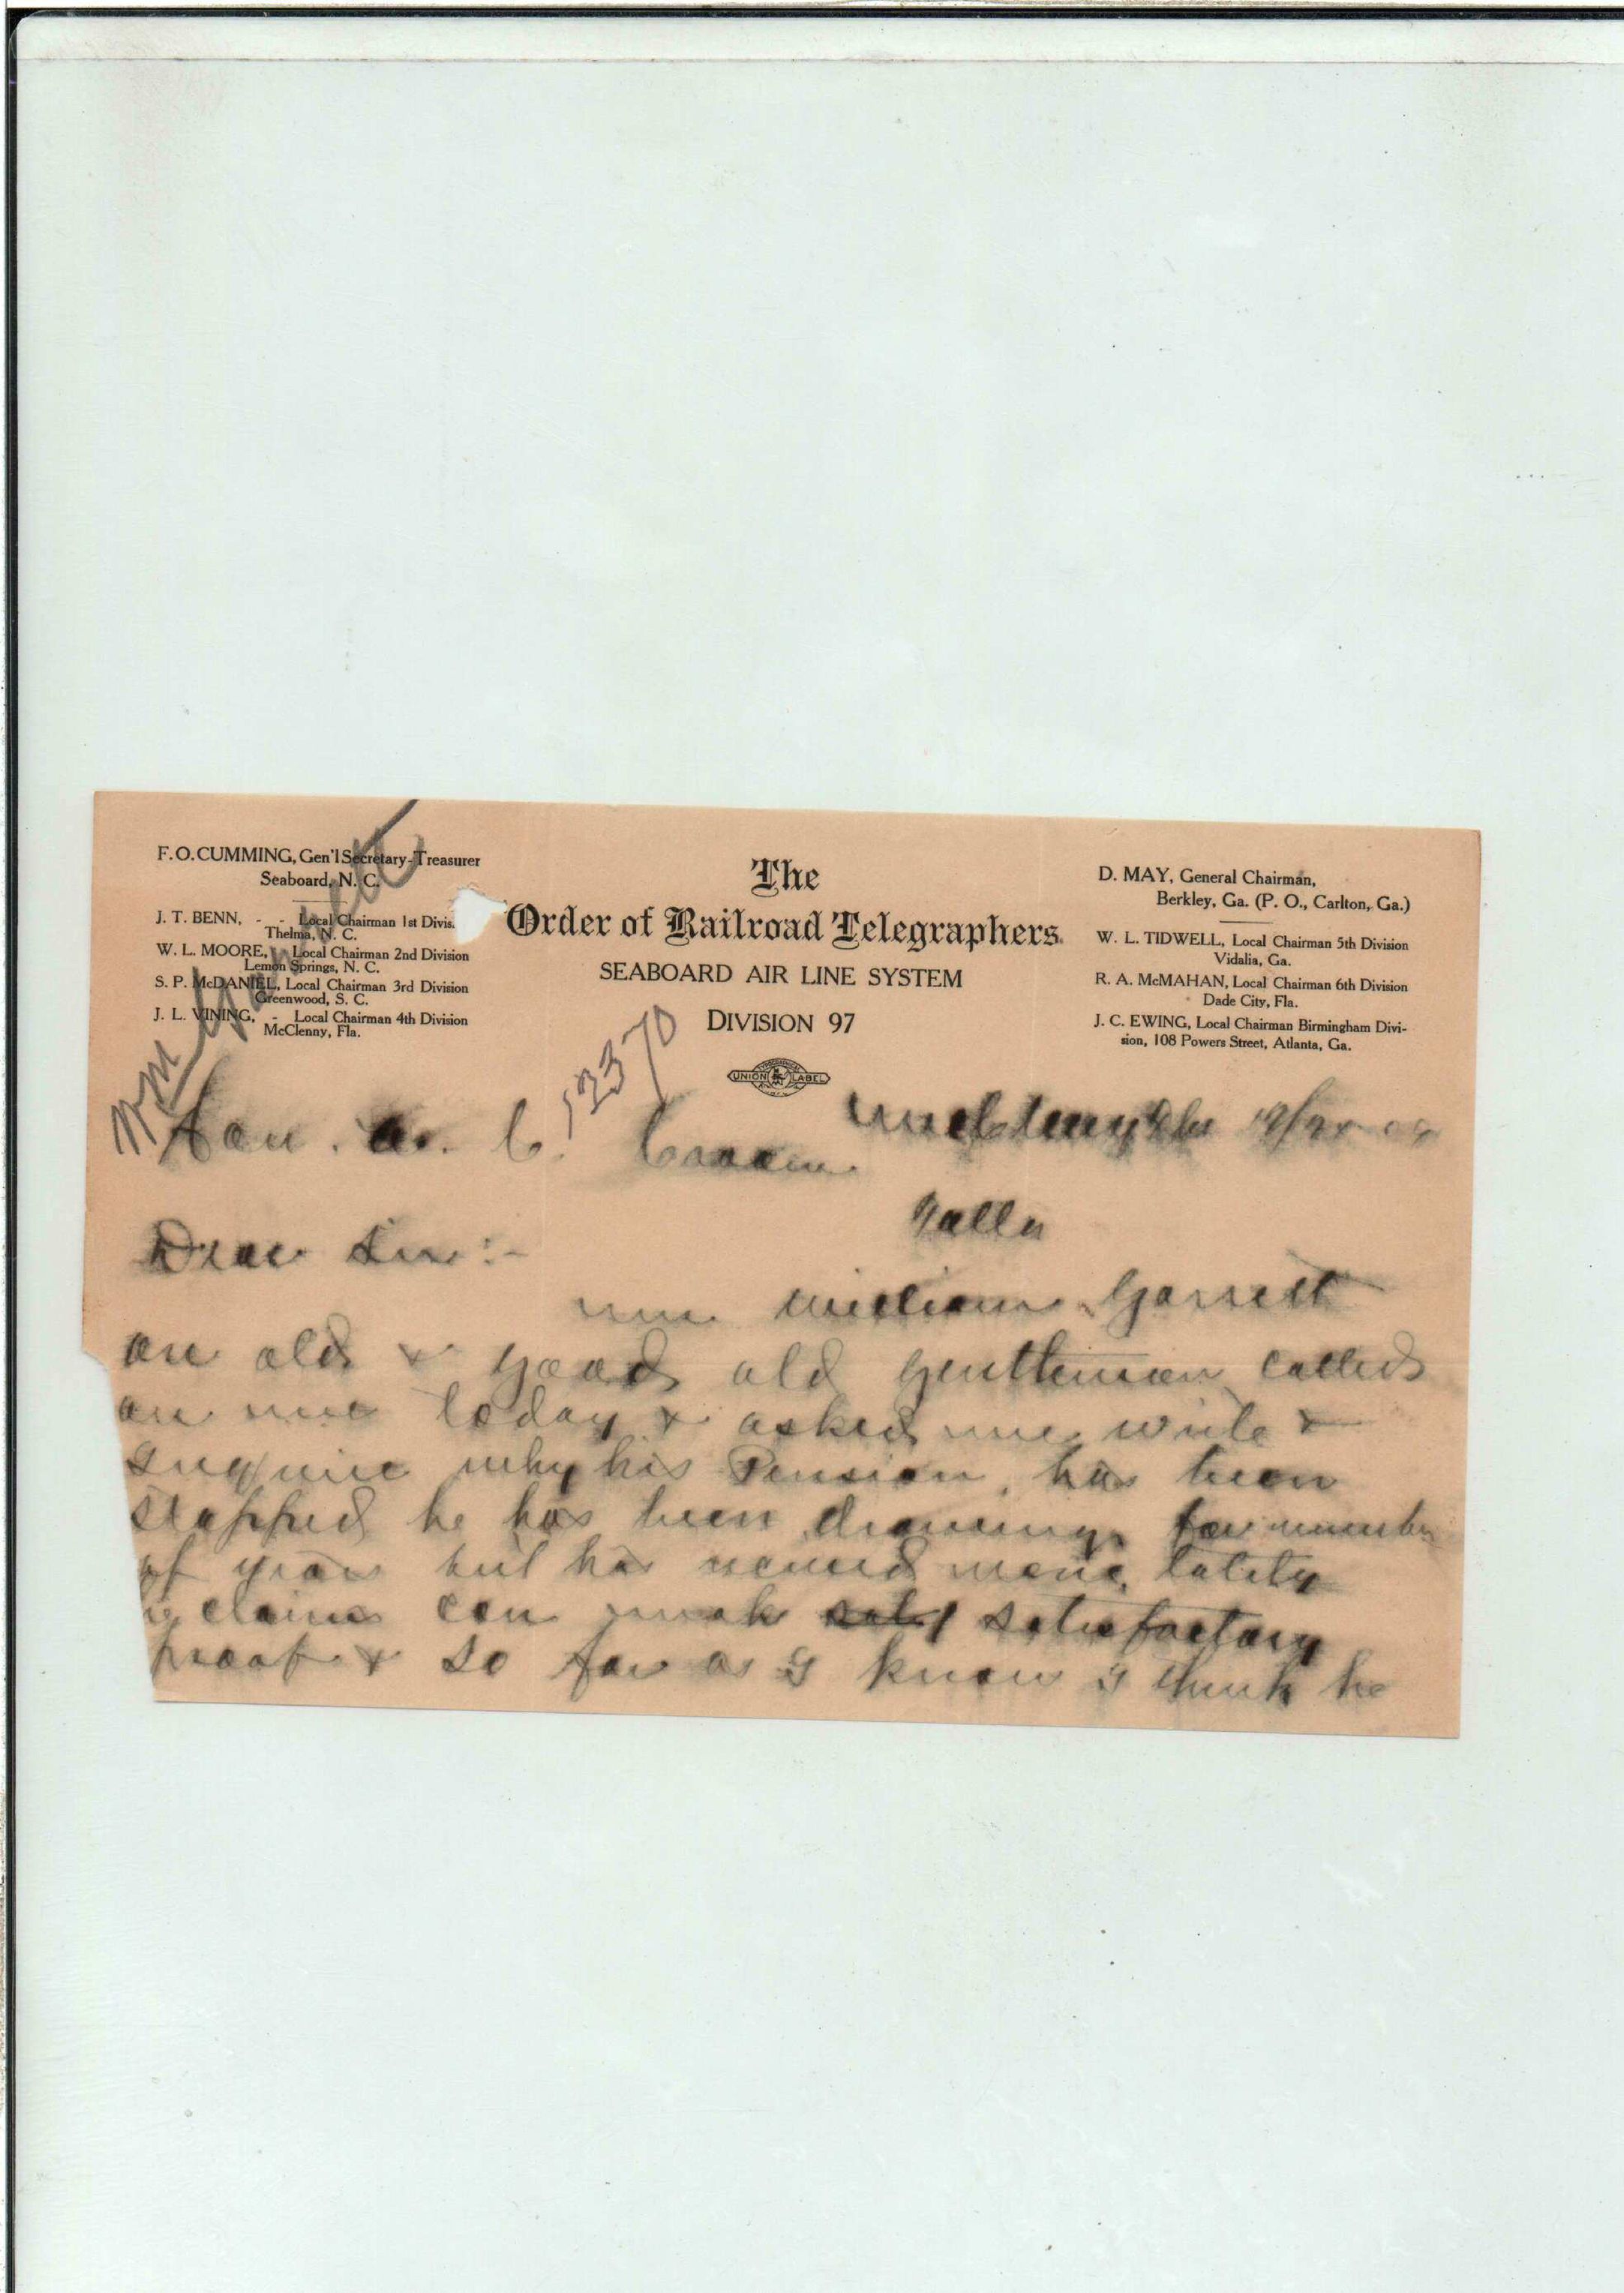 F. O. CUMMING, Gen'l Secretary-Treasurer
Seaboard, N. C.
J. T. BENN, - - Local Chairman 1st Divis.
Thelma, N. C.
W. L. MOORE, Local Chairman 2nd Division
Lemon Springs, N. C.
S. P. McDANIEL, Local Chairman 3rd Division
Greenwood, S. C.
J. L. VINING, - Local Chairman 4th Division
McClenny, Fla.
The
Order of Railroad Telegraphers
SEABOARD AIR LINE SYSTEM
DIVISION 97
UNION LABEL
D. MAY, General Chairman,
Berkley, Ga. (P. O., Carlton, Ga.)
W. L. TIDWELL, Local Chairman 5th Division
Vidalia, Ga.
R. A. McMAHAN, Local Chairman 6th Division
Dade City, Fla.
J. C. EWING, Local Chairman Birmingham Divi-
sion, 108 Powers Street, Atlanta, Ga.
Wm Garrett
13370
Hon. A. C. Croom
Talla
Dear Sir:-
Mr. William Garrett
an old & good old gentleman called
on me today & asked me write &
Inquire why his Pension, has been
stopped he has been drawing for number
of years but has received none lately
he claims can make satisfactory
proof & so far as I know I think he